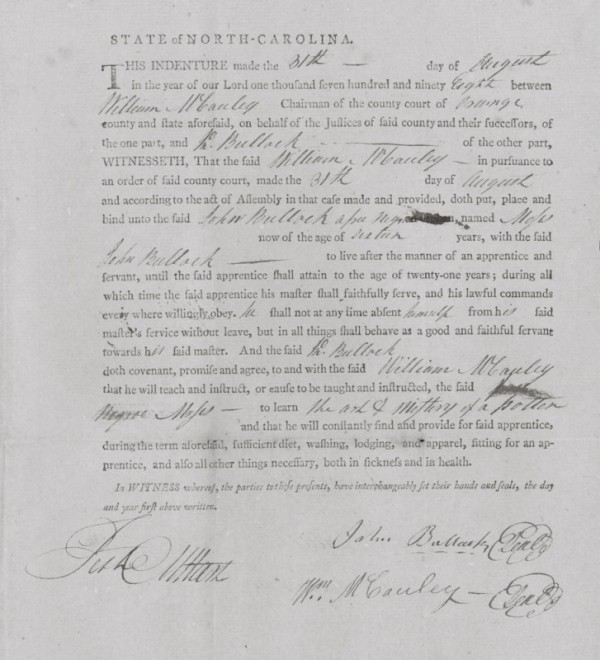 STATE of NORTH-CAROLINA.
THIS INDENTURE made the 31th day of August
in the year of our Lord one thousand seven hundred and ninety Eight between
William McCauley Chairman of the county court of Orange
county and state aforesaid, on behalf of the Justices of said county and their successors, of
the one part, and Jno. Bullock of the other part,
WITNESSETH, That the said William McCauley in pursuance to
an order of said county court, made the 31th day of August
and according to the act of Assembly in that case made and provided, doth put, place and
bind unto the said John Bullock a free negro named Moses
now of the age of years, with the said
John Bullock to live after the manner of an apprentice and
servant, until the said apprentice shall attain to the age of twenty-one years; during all
which time the said apprentice his master shall faithfully serve, and his lawful commands
every where willingly obey. he shall not at any time absent himself from his said
master's service without leave, but in all things shall behave as a good and faithful servant
towards his said master. And the said Jno. Bullock
doth covenant, promise and agree, to and with the said William McCauley
that he will teach and instruct, or cause to be taught and instructed, the said
negroe Moses to learn the art & mystery of a potter
and that he will constantly find and provide for said apprentice,
during the term aforesaid, sufficient diet, washing, lodging, and apparel, fitting for an ap-
prentice, and also all other things necessary, both in sickness and in health.
In WITNESS whereof, the parties to these presents, have interchangeably set their hands and seals, the day
and year first above written.
John Bullock Seal
Wm. McCauley Seal